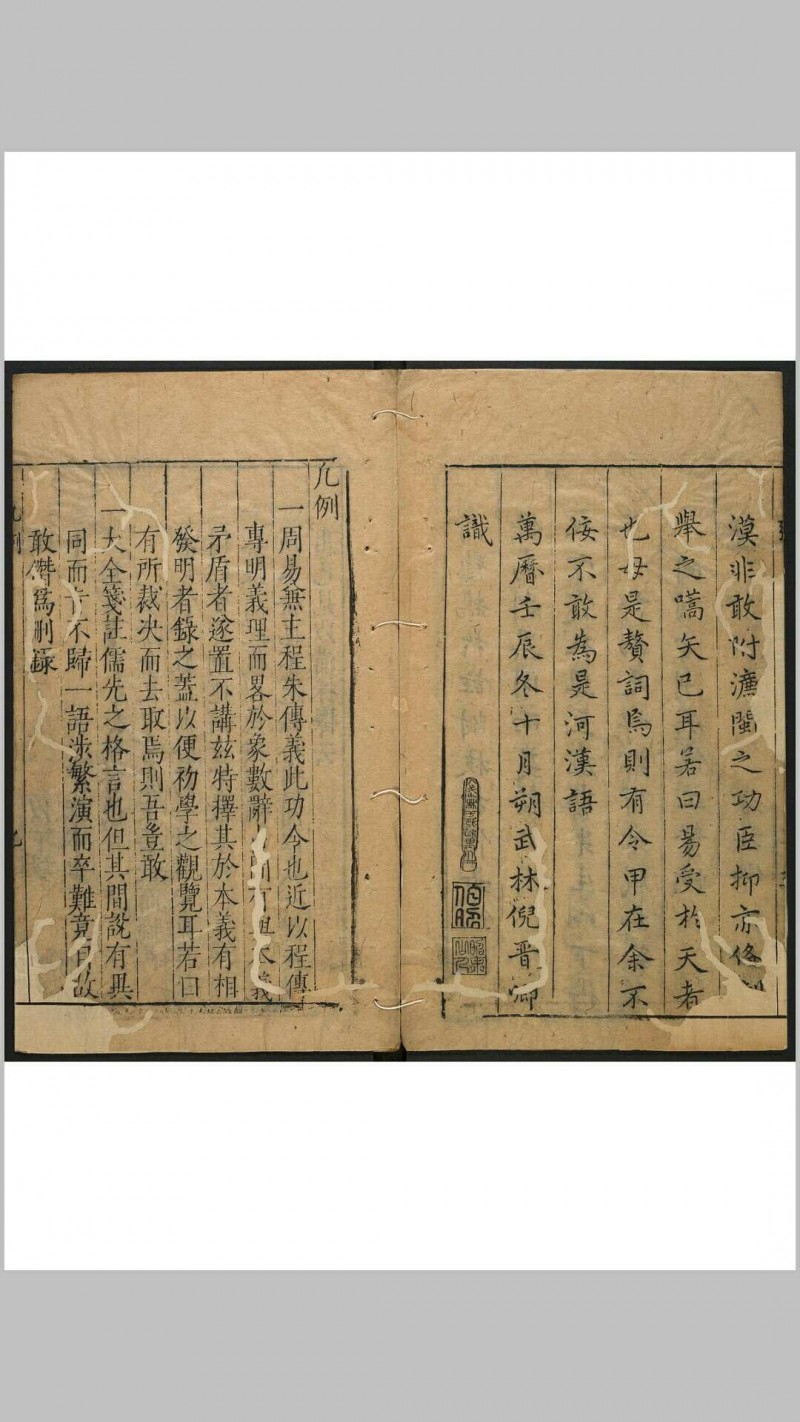 漠非敢附濂閩之功臣抑亦俻
舉之嚆矢已耳若曰易受於天者
也毋是贅詞爲則有令甲在余不
佞不敢為是河漢語
萬曆壬辰冬十月朔武林倪晋卿
識
凡例
一周易無主程朱傳義此功令也近以程傳
專明義理而畧於象數辭 間有與本義
矛盾者遂置不講茲特擇其於本義有相
發明者錄之蓋以便初學之觀覽耳若曰
有所裁決而去取焉則吾豈敢
一大全箋註儒先之格言也但其間說有異
同而 不歸一語涉繁演而卒難竟 故
敢僭爲刪錄